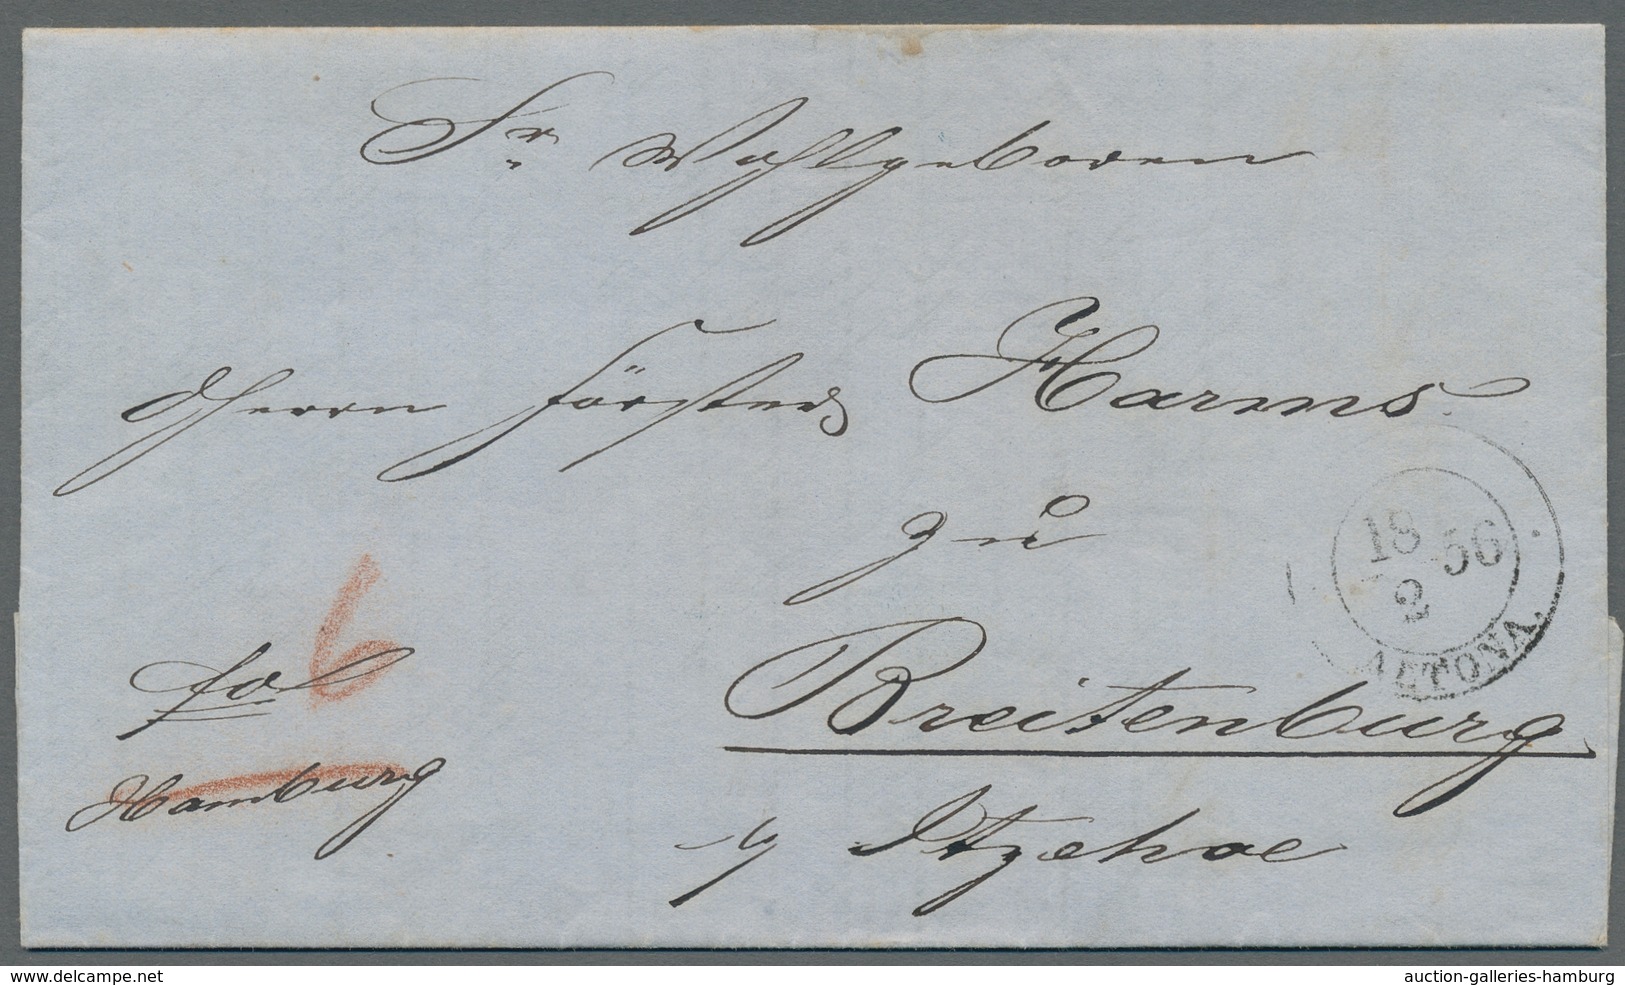 Sr. Wohlgeboren
Herrn Förster Harms
zu
Breitenburg
p Itzehoe
6
fco
Hamburg
18 56
2
ALTONA.
www.delcampe.net
auction-galleries-hamburg